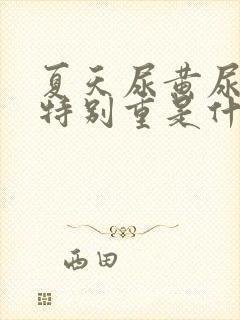 夏天尿黄尿
特别重是什
西田